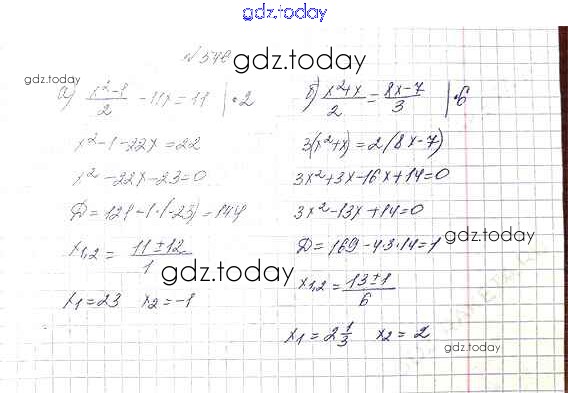 gdz.today
gdz.today
gdz.today
а) (x²-1)/2 - 11x = 11 | •2
x²-1-22x=22
x²-22x-23=0
D=121-1·(-23)=144
x₁,₂ = (11±12)/1
x₁=23 x₂=-1
б) (x²+x)/2 = (8x-7)/3 | •6
3(x²+x)=2(8x-7)
3x²+3x-16x+14=0
3x²-13x+14=0
D=169-4·3·14=1
x₁,₂ = (13±1)/6
x₁=2 1/3 x₂=2
gdz.today
gdz.today
gdz.today